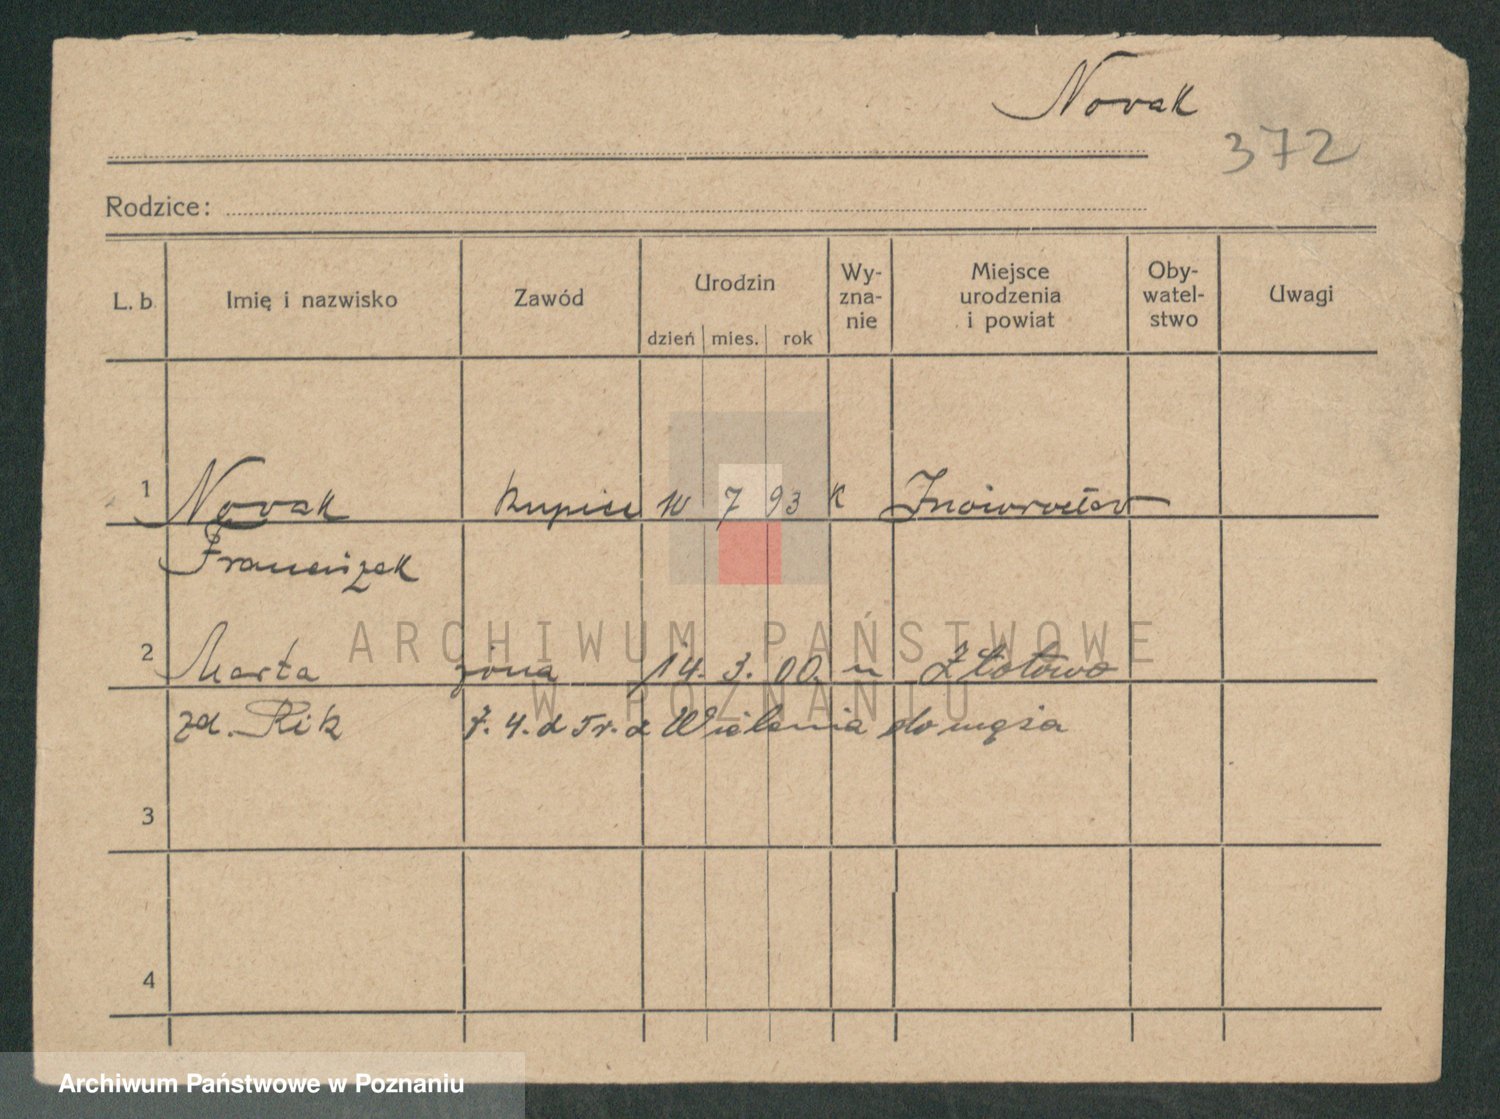 Novak
372
Rodzice:
L. b. Imię i nazwisko Zawód Urodzin Wy-zna-nie Miejsce urodzenia i powiat Oby-watel-stwo Uwagi
dzień mies. rok
1 Novak kupiec 10 7 93 K Inowrocław
Franciszek
2 Marta żona 14. 3. 00. " Złotowo
zd. Rik 7. 4. d Wielenia do męża
3
4
ARCHIWUM PAŃSTWOWE
W POZNANIU
Archiwum Państwowe w Poznaniu